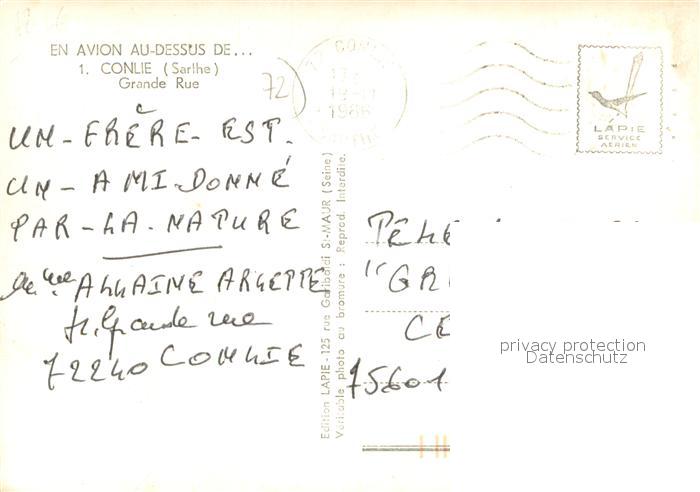 EN AVION AU-DESSUS DE...
1. CONLIE (Sarthe)
Grande Rue
72
1986
LAPIE
SERVICE
AERIEN
UN-FRÈRE-EST.
UN-AMI-DONNÉ
PAR-LA-NATURE
ALLAINE
grande rue
72240 CONLIE
Edition LAPIE - 125 rue Garibaldi St-MAUR (Seine)
Véritable photo au bromure : Reprod. Interdite.
TÉLÉ
"GR
CE
75601
privacy protection
Datenschutz